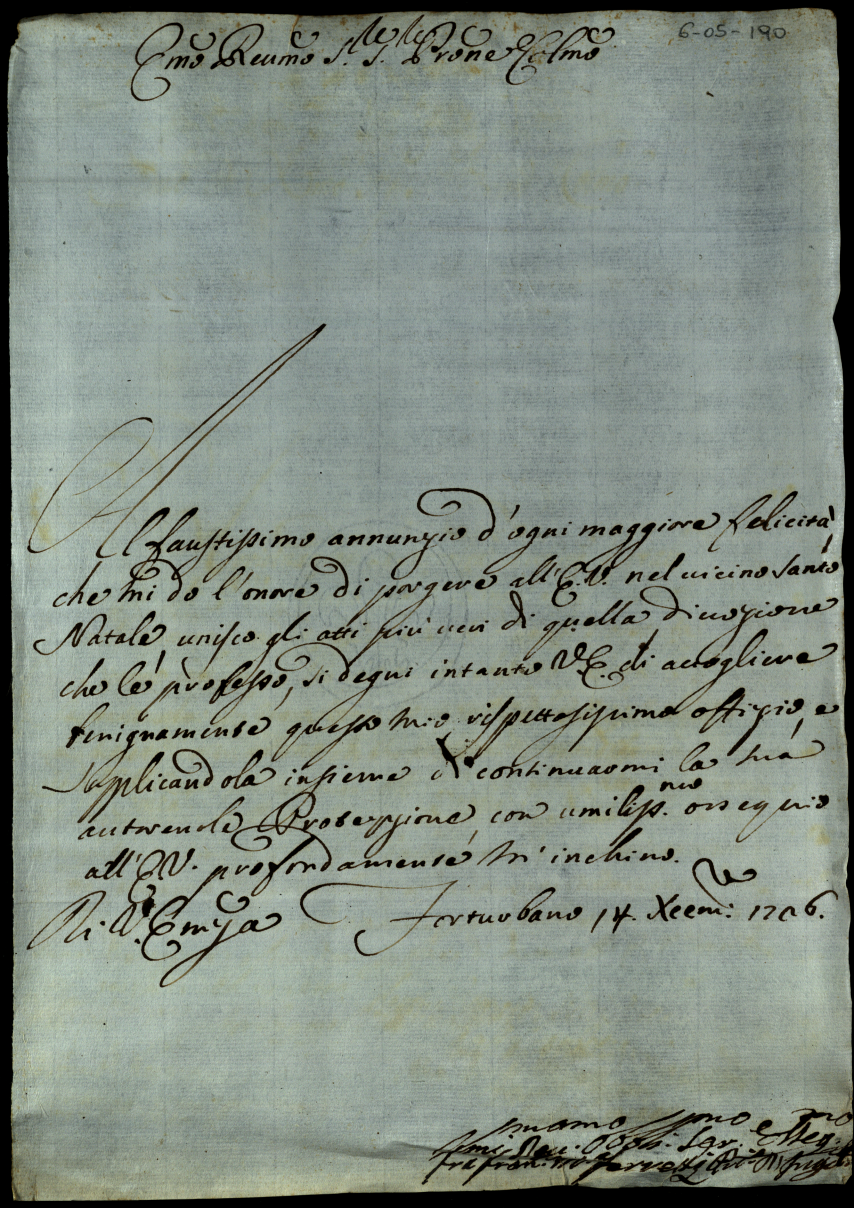 6-05-190
Emo Reumo Sr. Sr. Prone Colmo
Al faustissimo annunzio d'ogni maggiore felicità,
che mi do l'onore di porgere all'E.V. nel uicino Santo
Natale, unisco gli atti più ueri di quella diuozione
che le professo, si degni intanto V.E. di accogliere
benignamente questo mio rispettosissimo offizio, e
supplicandola insieme di continuarmi la sua
autoreuole Protezzione, con umiliss.mo ossequio
all'E.V. profondamente m'inchino.
Di V. Emza Forturbano 14. Xcem.re 1706.